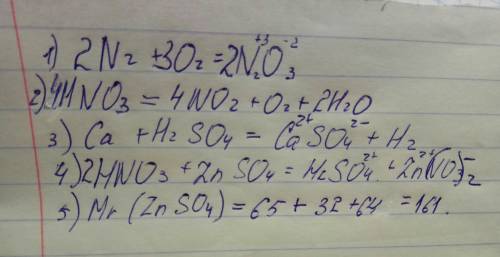 1) 2N₂ + 3O₂ = 2N₂⁺³O₃⁻²
2) 4HNO₃ = 4NO₂ + O₂ + 2H₂O
3) Ca + H₂SO₄ = Ca²⁺SO₄²⁻ + H₂
4) 2HNO₃ + ZnSO₄ = H₂SO₄²⁺ + Zn²⁺(NO₃)⁻₂
5) Mr (ZnSO₄) = 65 + 32 + 64 = 161.